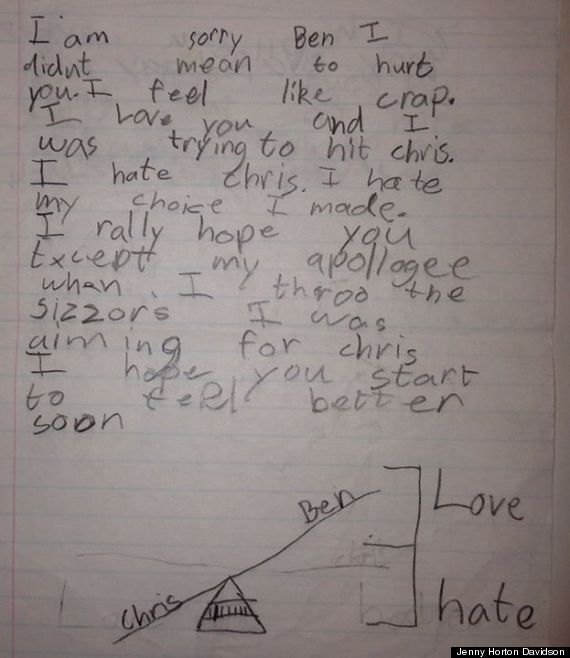 I am sorry Ben I
didnt mean to hurt
you. I feel like crap.
I Love you and I
was trying to hit chris.
I hate chris. I hate
my choice I made.
I rally hope you
Exceptt my apollogee
when I throo the
sizzors I was
aiming for chris
I hope you start
to feel better
soon
Ben
Love
chris
hate
Jenny Horton Davidson